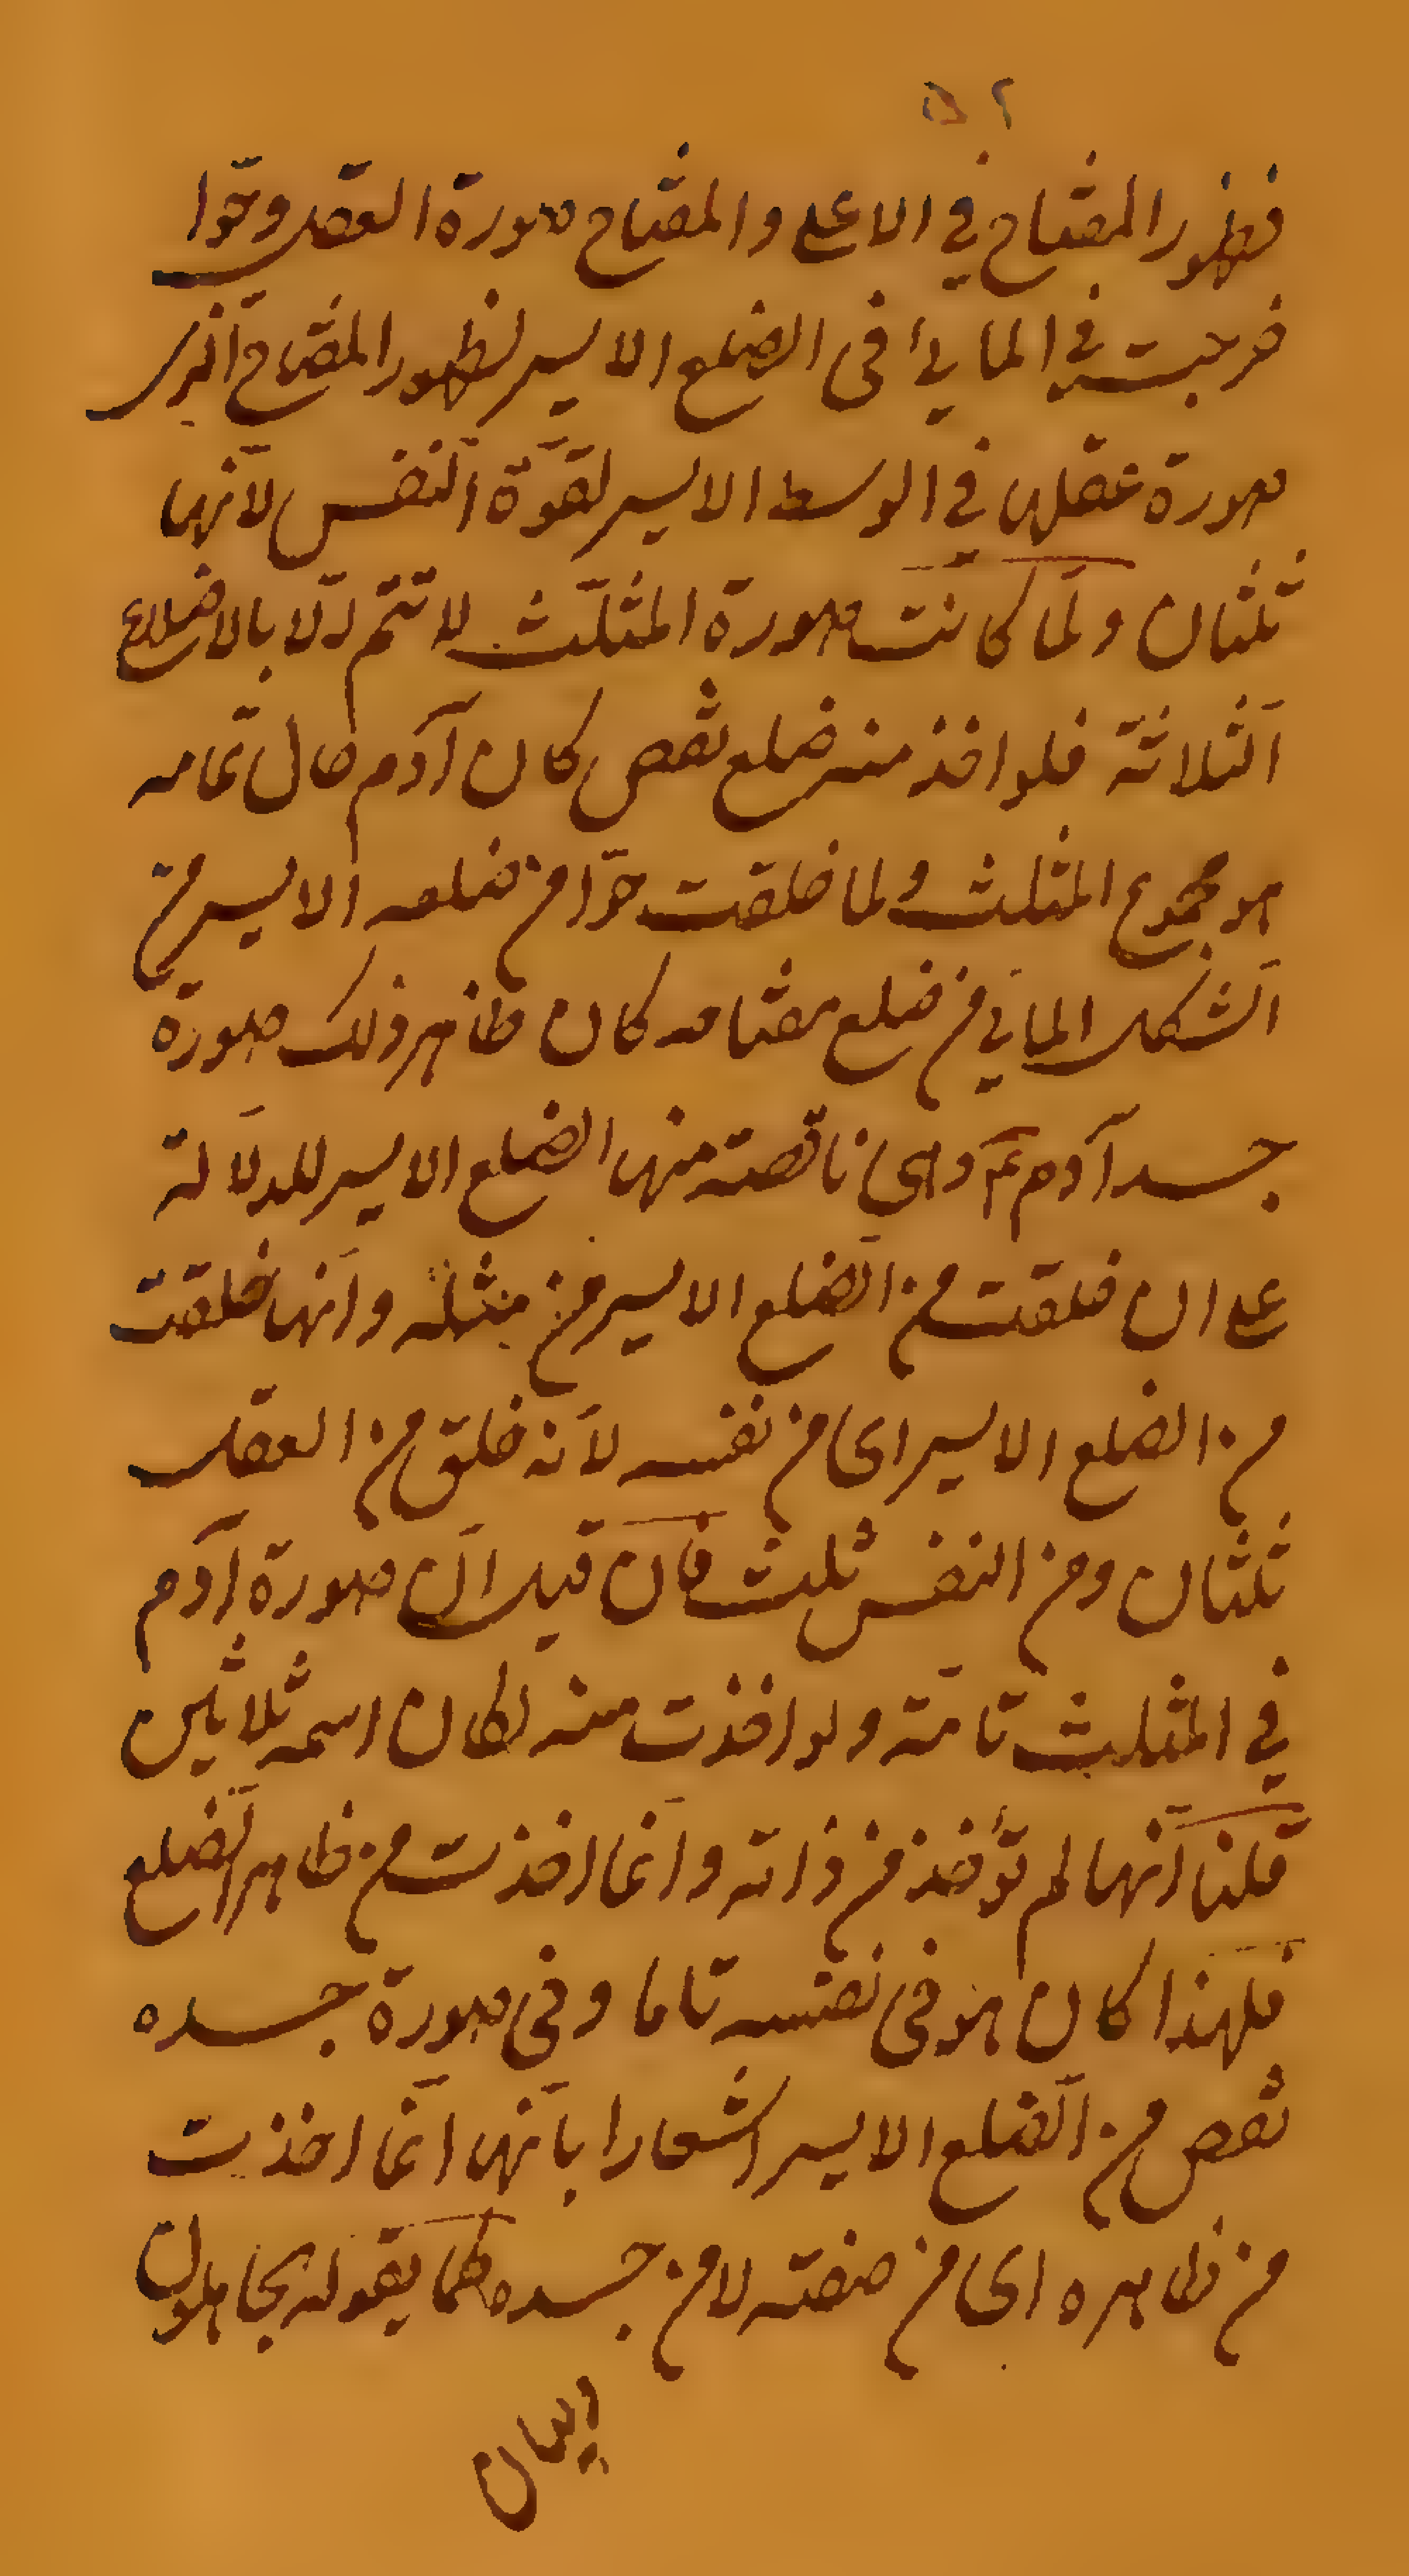 ٥٢
فظهور المفتاح في الاعلى والمفتاح صورة العقل وحوّا
خرجت في المائي في الضلع الايسر لظهور المفتاح الّذي
صورة عقلها في الوسط الايسر لقوّة النّفس لانّها
ثلثان ولمّا كانت صورة المثلّث لا تتم الّا بالاضلاع
الثّلاثة فلو اخذ منه ضلع نقص كان آدم حال تمامه
هو مجموع المثلث ولما خلقت حوّا من ضلعه الايسر من
الشّكل المائي من ضلع مفتاحه كان ظاهر ذلك صورة
جسد آدم ع وهي ناقصة منها الضلع الايسر للدلالة
على ان خلقت من الضّلع الايسر من مثله وانّها خلقت
من الضلع الايسر اى من نفسه لانّه خلق من العقل
ثلثان ومن النفس ثلث فان قيل انّ صورة آدم
في المثلث تامّة ولو اخذت منه لكان اسمه ثلاثين
قلنا انّها لم تؤخذ من ذاته وانّما اخذت من ظاهر الضّلع
فلهذا كان هو في نفسه تاما وفي صورة جسده
نقص من الضّلع الايسر اشعارا بانّها انّما اخذت
من ظاهره اى من صفته لا من جسده كما يقوله الجاهلون